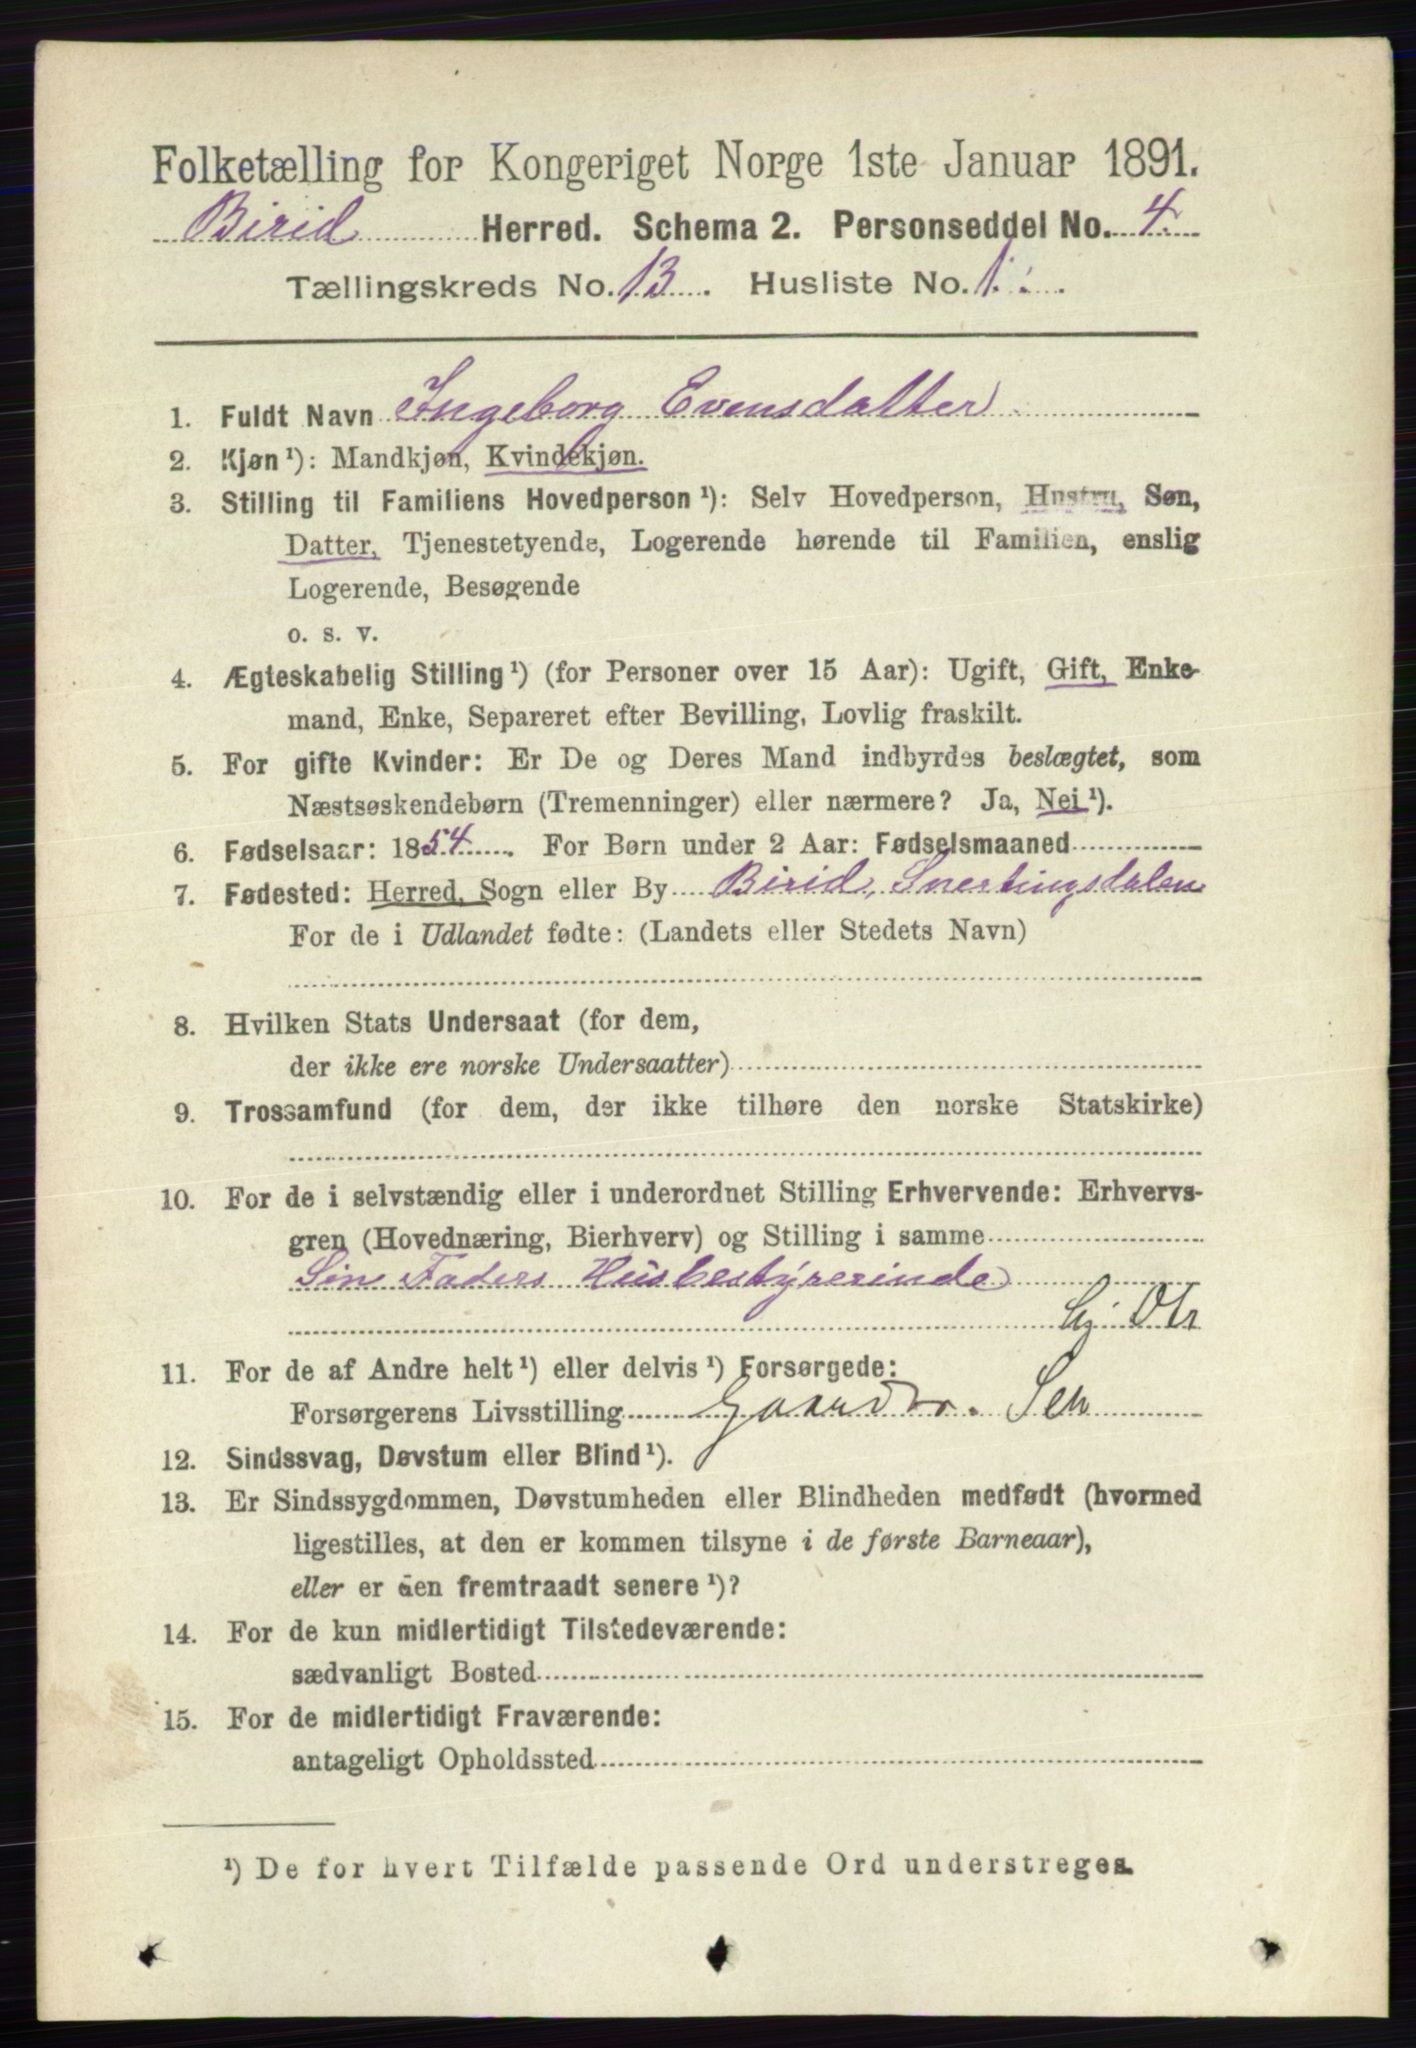 Folketælling for Kongeriget Norge 1ste Januar 1891.
Birid Herred. Schema 2. Personseddel No. 4.
Tællingskreds No. 13. Husliste No. 1.
1. Fuldt Navn Ingeborg Evensdatter
2. Kjøn¹): Mandkjøn, Kvindekjøn.
3. Stilling til Familiens Hovedperson¹): Selv Hovedperson, Hustru, Søn,
Datter, Tjenestetyende, Logerende hørende til Familien, enslig
Logerende, Besøgende
o. s. v.
4. Ægteskabelig Stilling¹) (for Personer over 15 Aar): Ugift, Gift, Enke-
mand, Enke, Separeret efter Bevilling, Lovlig fraskilt.
5. For gifte Kvinder: Er De og Deres Mand indbyrdes beslægtet, som
Næstsøskendebørn (Tremenninger) eller nærmere? Ja, Nei¹).
6. Fødselsaar: 1854. For Børn under 2 Aar: Fødselsmaaned
7. Fødested: Herred, Sogn eller By Birid, Snertingsdalen
For de i Udlandet fødte: (Landets eller Stedets Navn)
8. Hvilken Stats Undersaat (for dem,
der ikke ere norske Undersaatter)
9. Trossamfund (for dem, der ikke tilhøre den norske Statskirke)
10. For de i selvstændig eller i underordnet Stilling Erhvervende: Erhvervs-
gren (Hovednæring, Bierhverv) og Stilling i samme
Sin Faders Husbestyrerinde
11. For de af Andre helt¹) eller delvis¹) Forsørgede:
Forsørgerens Livsstilling
12. Sindssvag, Døvstum eller Blind¹).
13. Er Sindssygdommen, Døvstumheden eller Blindheden medfødt (hvormed
ligestilles, at den er kommen tilsyne i de første Barneaar),
eller er den fremtraadt senere¹)?
14. For de kun midlertidigt Tilstedeværende:
sædvanligt Bosted
15. For de midlertidigt Fraværende:
antageligt Opholdssted
¹) De for hvert Tilfælde passende Ord understreges.